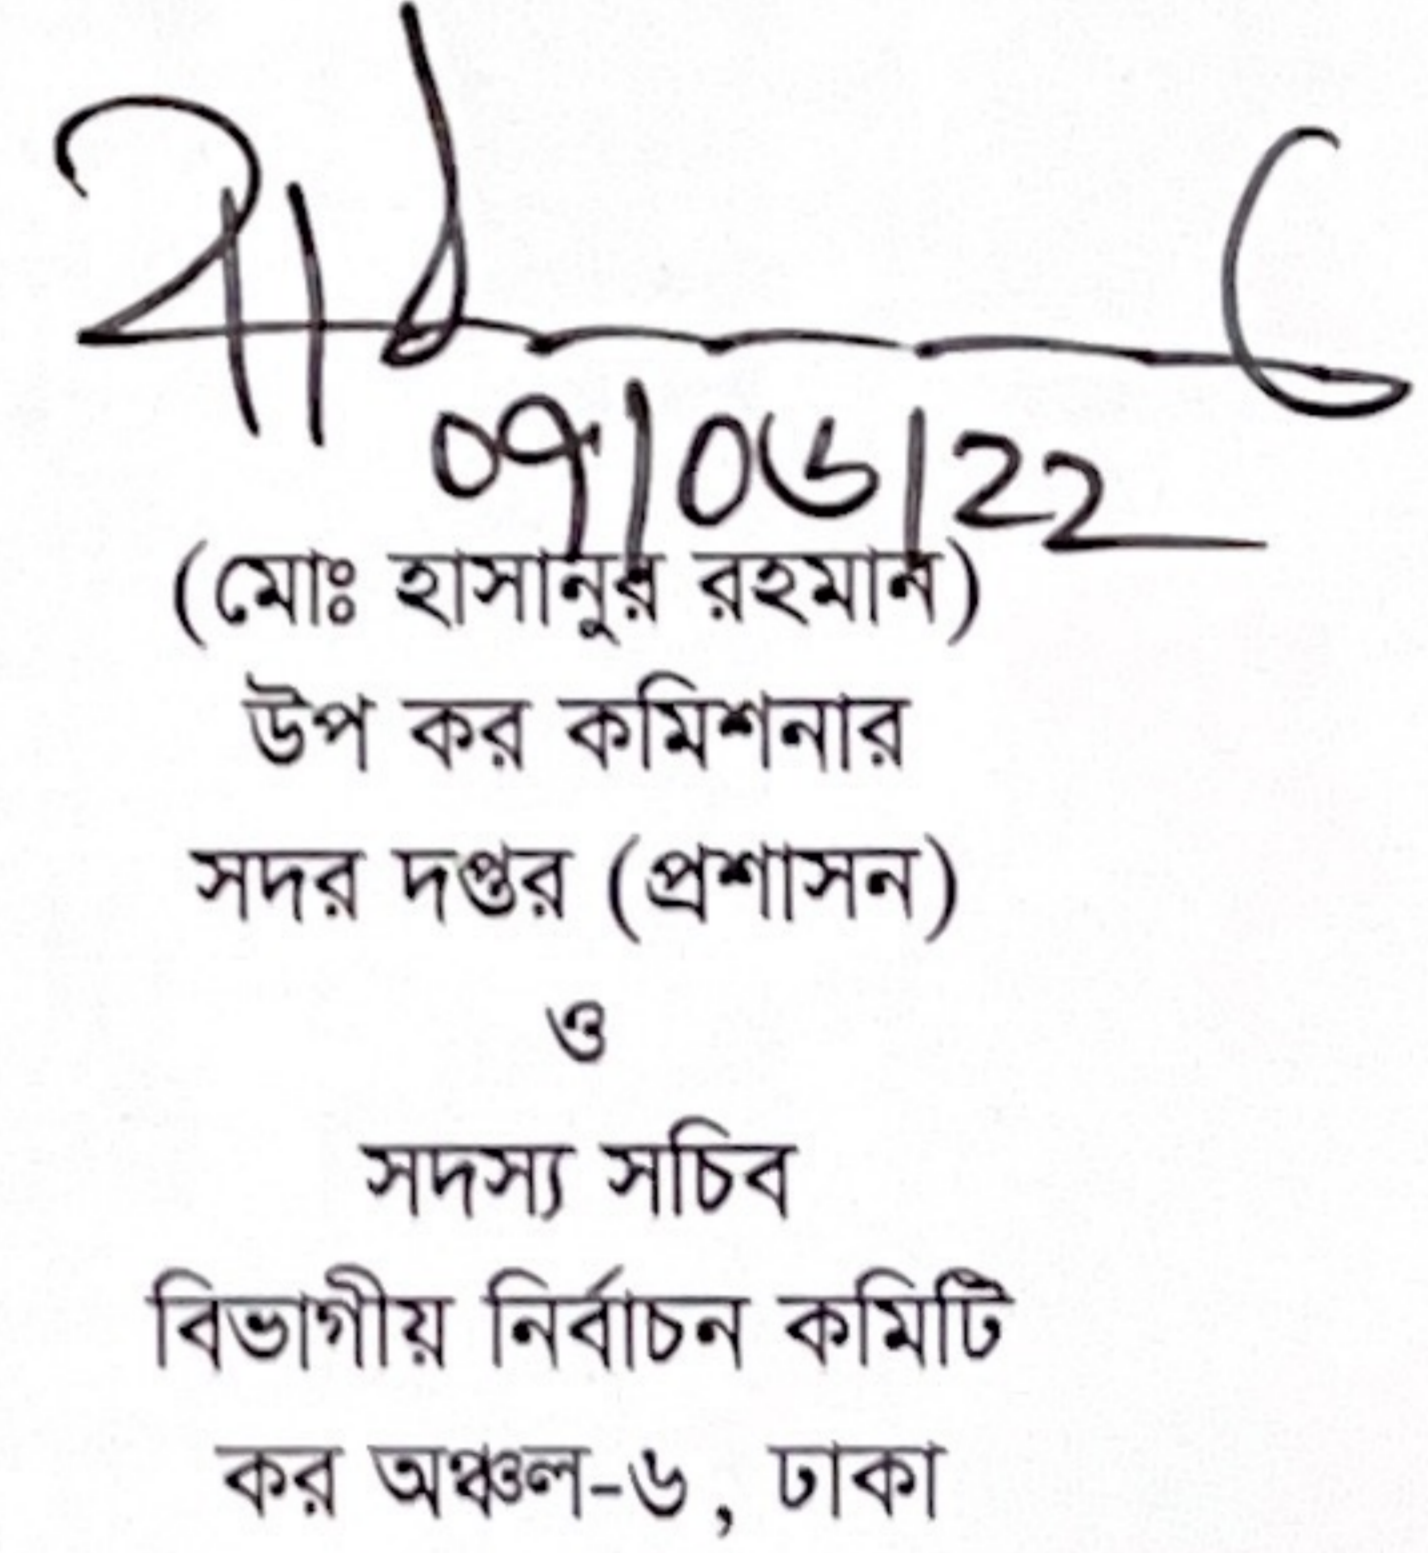 ০৭/০৬/২২
(মোঃ হাসানুর রহমান)
উপ কর কমিশনার
সদর দপ্তর (প্রশাসন)
ও
সদস্য সচিব
বিভাগীয় নির্বাচন কমিটি
কর অঞ্চল-৬, ঢাকা